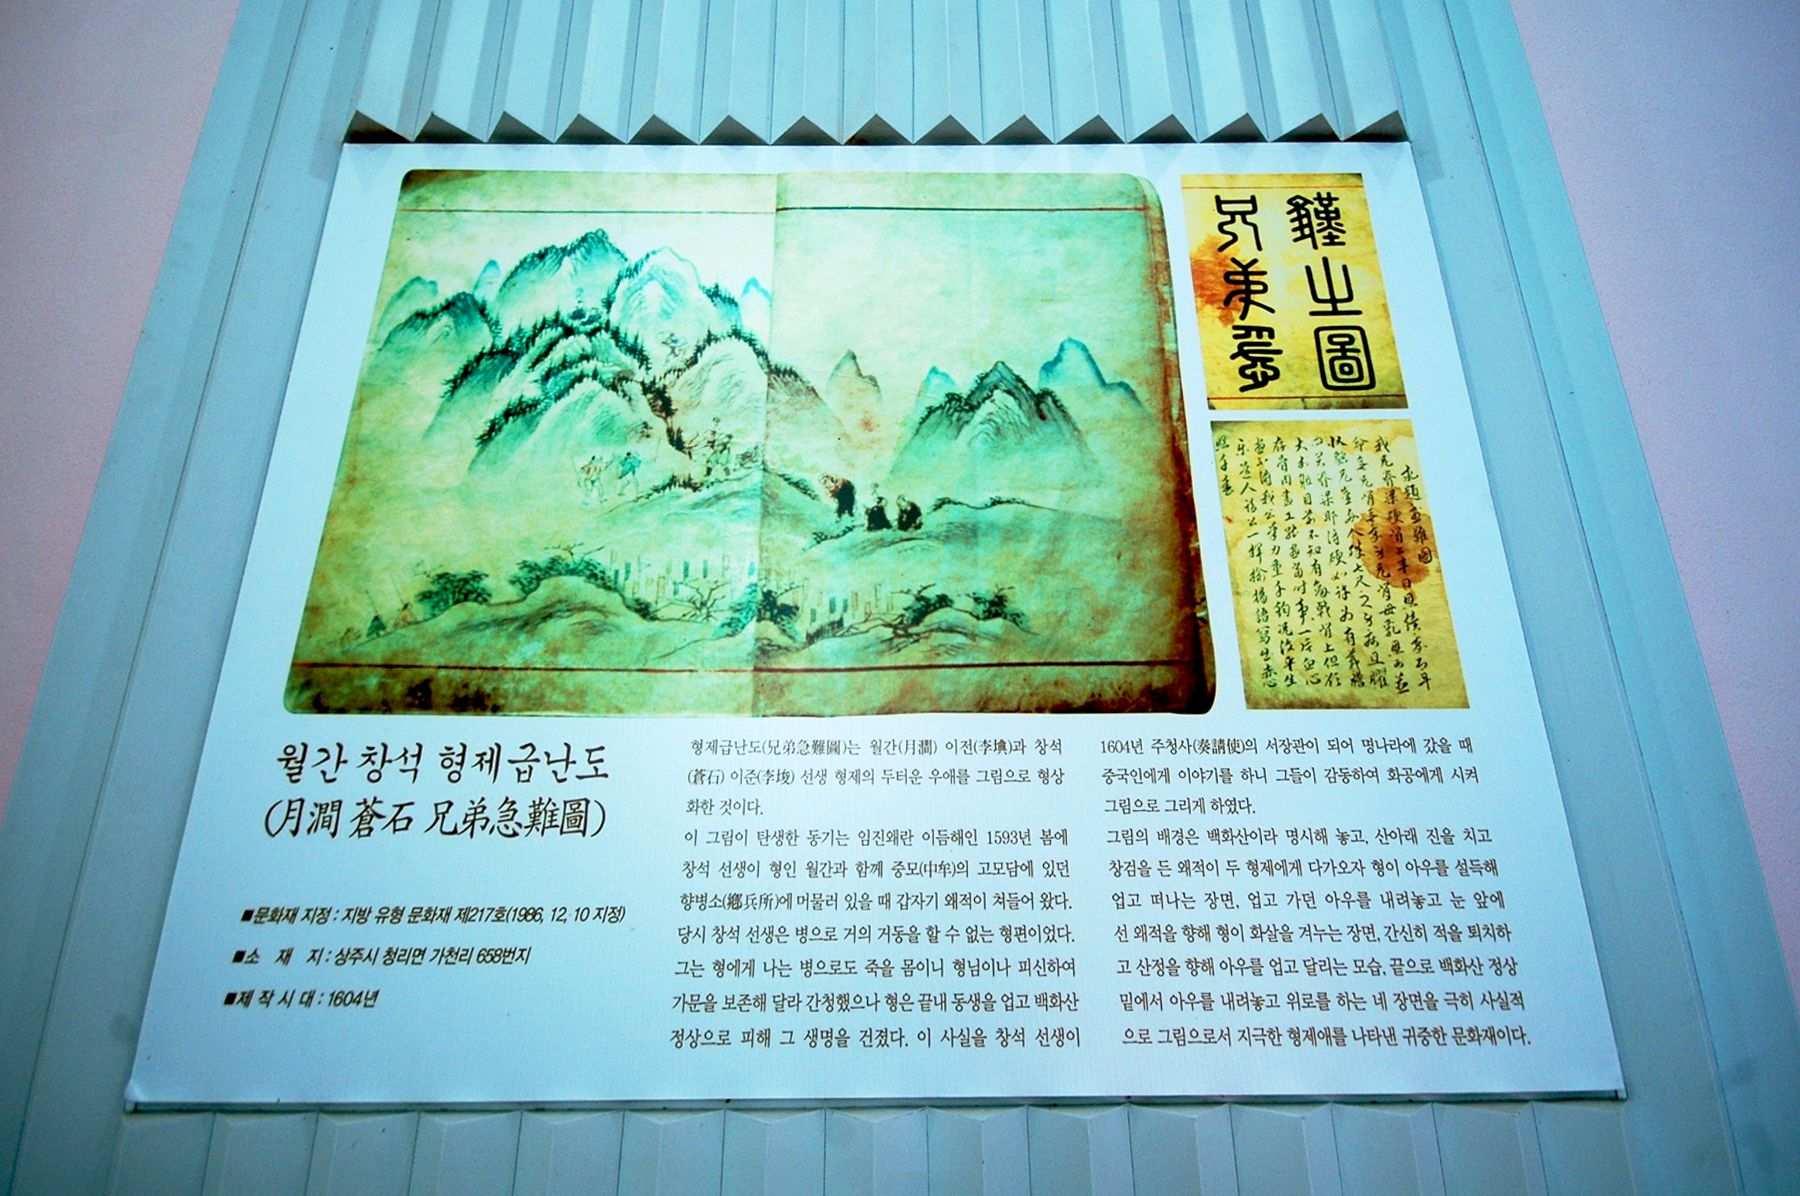 兄弟急
難之圖
월간 창석 형제급난도
(月澗 蒼石 兄弟急難圖)
■문화재 지정 : 지방 유형 문화재 제217호(1986, 12, 10 지정)
■소 재 지 : 상주시 청리면 가천리 658번지
■제 작 시 대 : 1604년
형제급난도(兄弟急難圖)는 월간(月澗) 이전(李㙉)과 창석
(蒼石) 이준(李埈) 선생 형제의 두터운 우애를 그림으로 형상
화한 것이다.
이 그림이 탄생한 동기는 임진왜란 이듬해인 1593년 봄에
창석 선생이 형인 월간과 함께 중모(中牟)의 고모담에 있던
향병소(鄕兵所)에 머물러 있을 때 갑자기 왜적이 쳐들어 왔다.
당시 창석 선생은 병으로 거의 거동을 할 수 없는 형편이었다.
그는 형에게 나는 병으로도 죽을 몸이니 형님이나 피신하여
가문을 보존해 달라 간청했으나 형은 끝내 동생을 업고 백화산
정상으로 피해 그 생명을 건졌다. 이 사실을 창석 선생이
1604년 주청사(奏請使)의 서장관이 되어 명나라에 갔을 때
중국인에게 이야기를 하니 그들이 감동하여 화공에게 시켜
그림으로 그리게 하였다.
그림의 배경은 백화산이라 명시해 놓고, 산아래 진을 치고
창검을 든 왜적이 두 형제에게 다가오자 형이 아우를 설득해
업고 떠나는 장면, 업고 가던 아우를 내려놓고 눈 앞에
선 왜적을 향해 형이 화살을 겨누는 장면, 간신히 적을 퇴치하
고 산정을 향해 아우를 업고 달리는 모습, 끝으로 백화산 정상
밑에서 아우를 내려놓고 위로를 하는 네 장면을 극히 사실적
으로 그림으로서 지극한 형제애를 나타낸 귀중한 문화재이다.